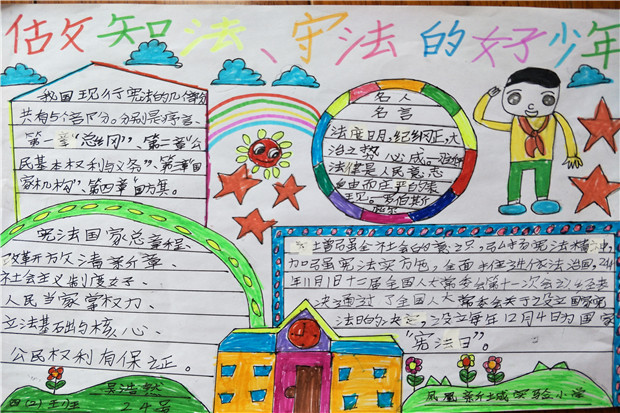 做文知法、守法的好少年
我国现行宪法的几个部分
共有5个部分。分别是序言、
第一章"总纲"、第二章"公
民基本权利与义务"、第三章"国
家机构"、第四章"国旗。
名人
名言
法度日月,纪纲正,大
治之 心成。
法律是人民意志
自由而庄严的表
现。罗伯斯
宪法国家总章程、
改革开放谱新章、
社会主义制度好、
人民当家掌权力、
立法基础与核心、
公民权利有保证。
四(2)班
吴浩然
24号
增强全社会的意识,弘扬宪法精神,
加强宪法实施,全面推进依法治国,
年11月1日十二届全国人大常委会第十一次会议
决通过了全国人大常委会关于设立国家宪
法日的决定,设立每年12月4日为国家
"宪法日"。
凤凰新城实验小学